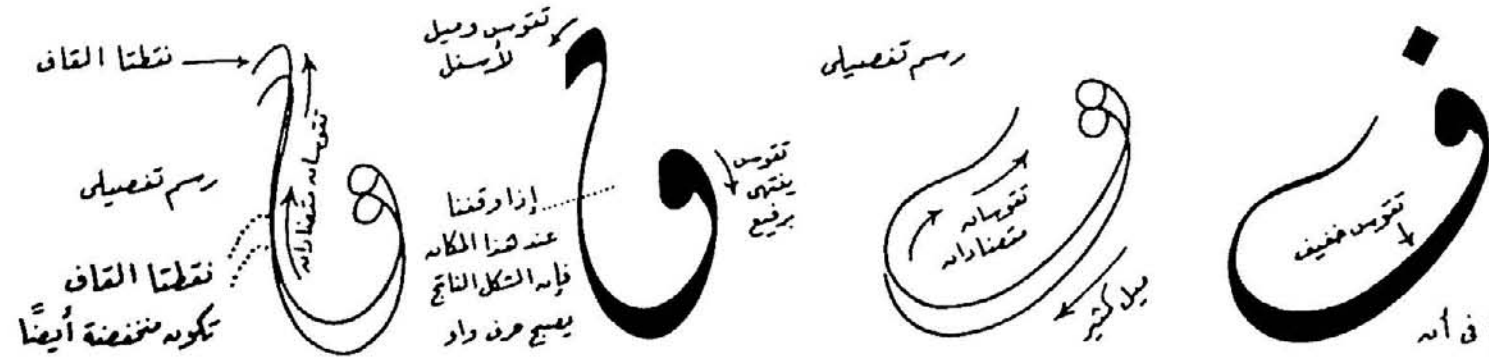 تقوس خفيف
في أن
رسم تفصيلى
تقوسان
متضادان
ميل كثير
تقوس وميل
لأسفل
تقوس
ينتهى
برفيع
إذا وقفنا
عند هذا المكان
فإن الشكل الناتج
يصبح حرف واو
نقطتا القاف
تقوسان متضادان
رسم تفصيلى
نقطتا القاف
تكون منخفضة أيضًا